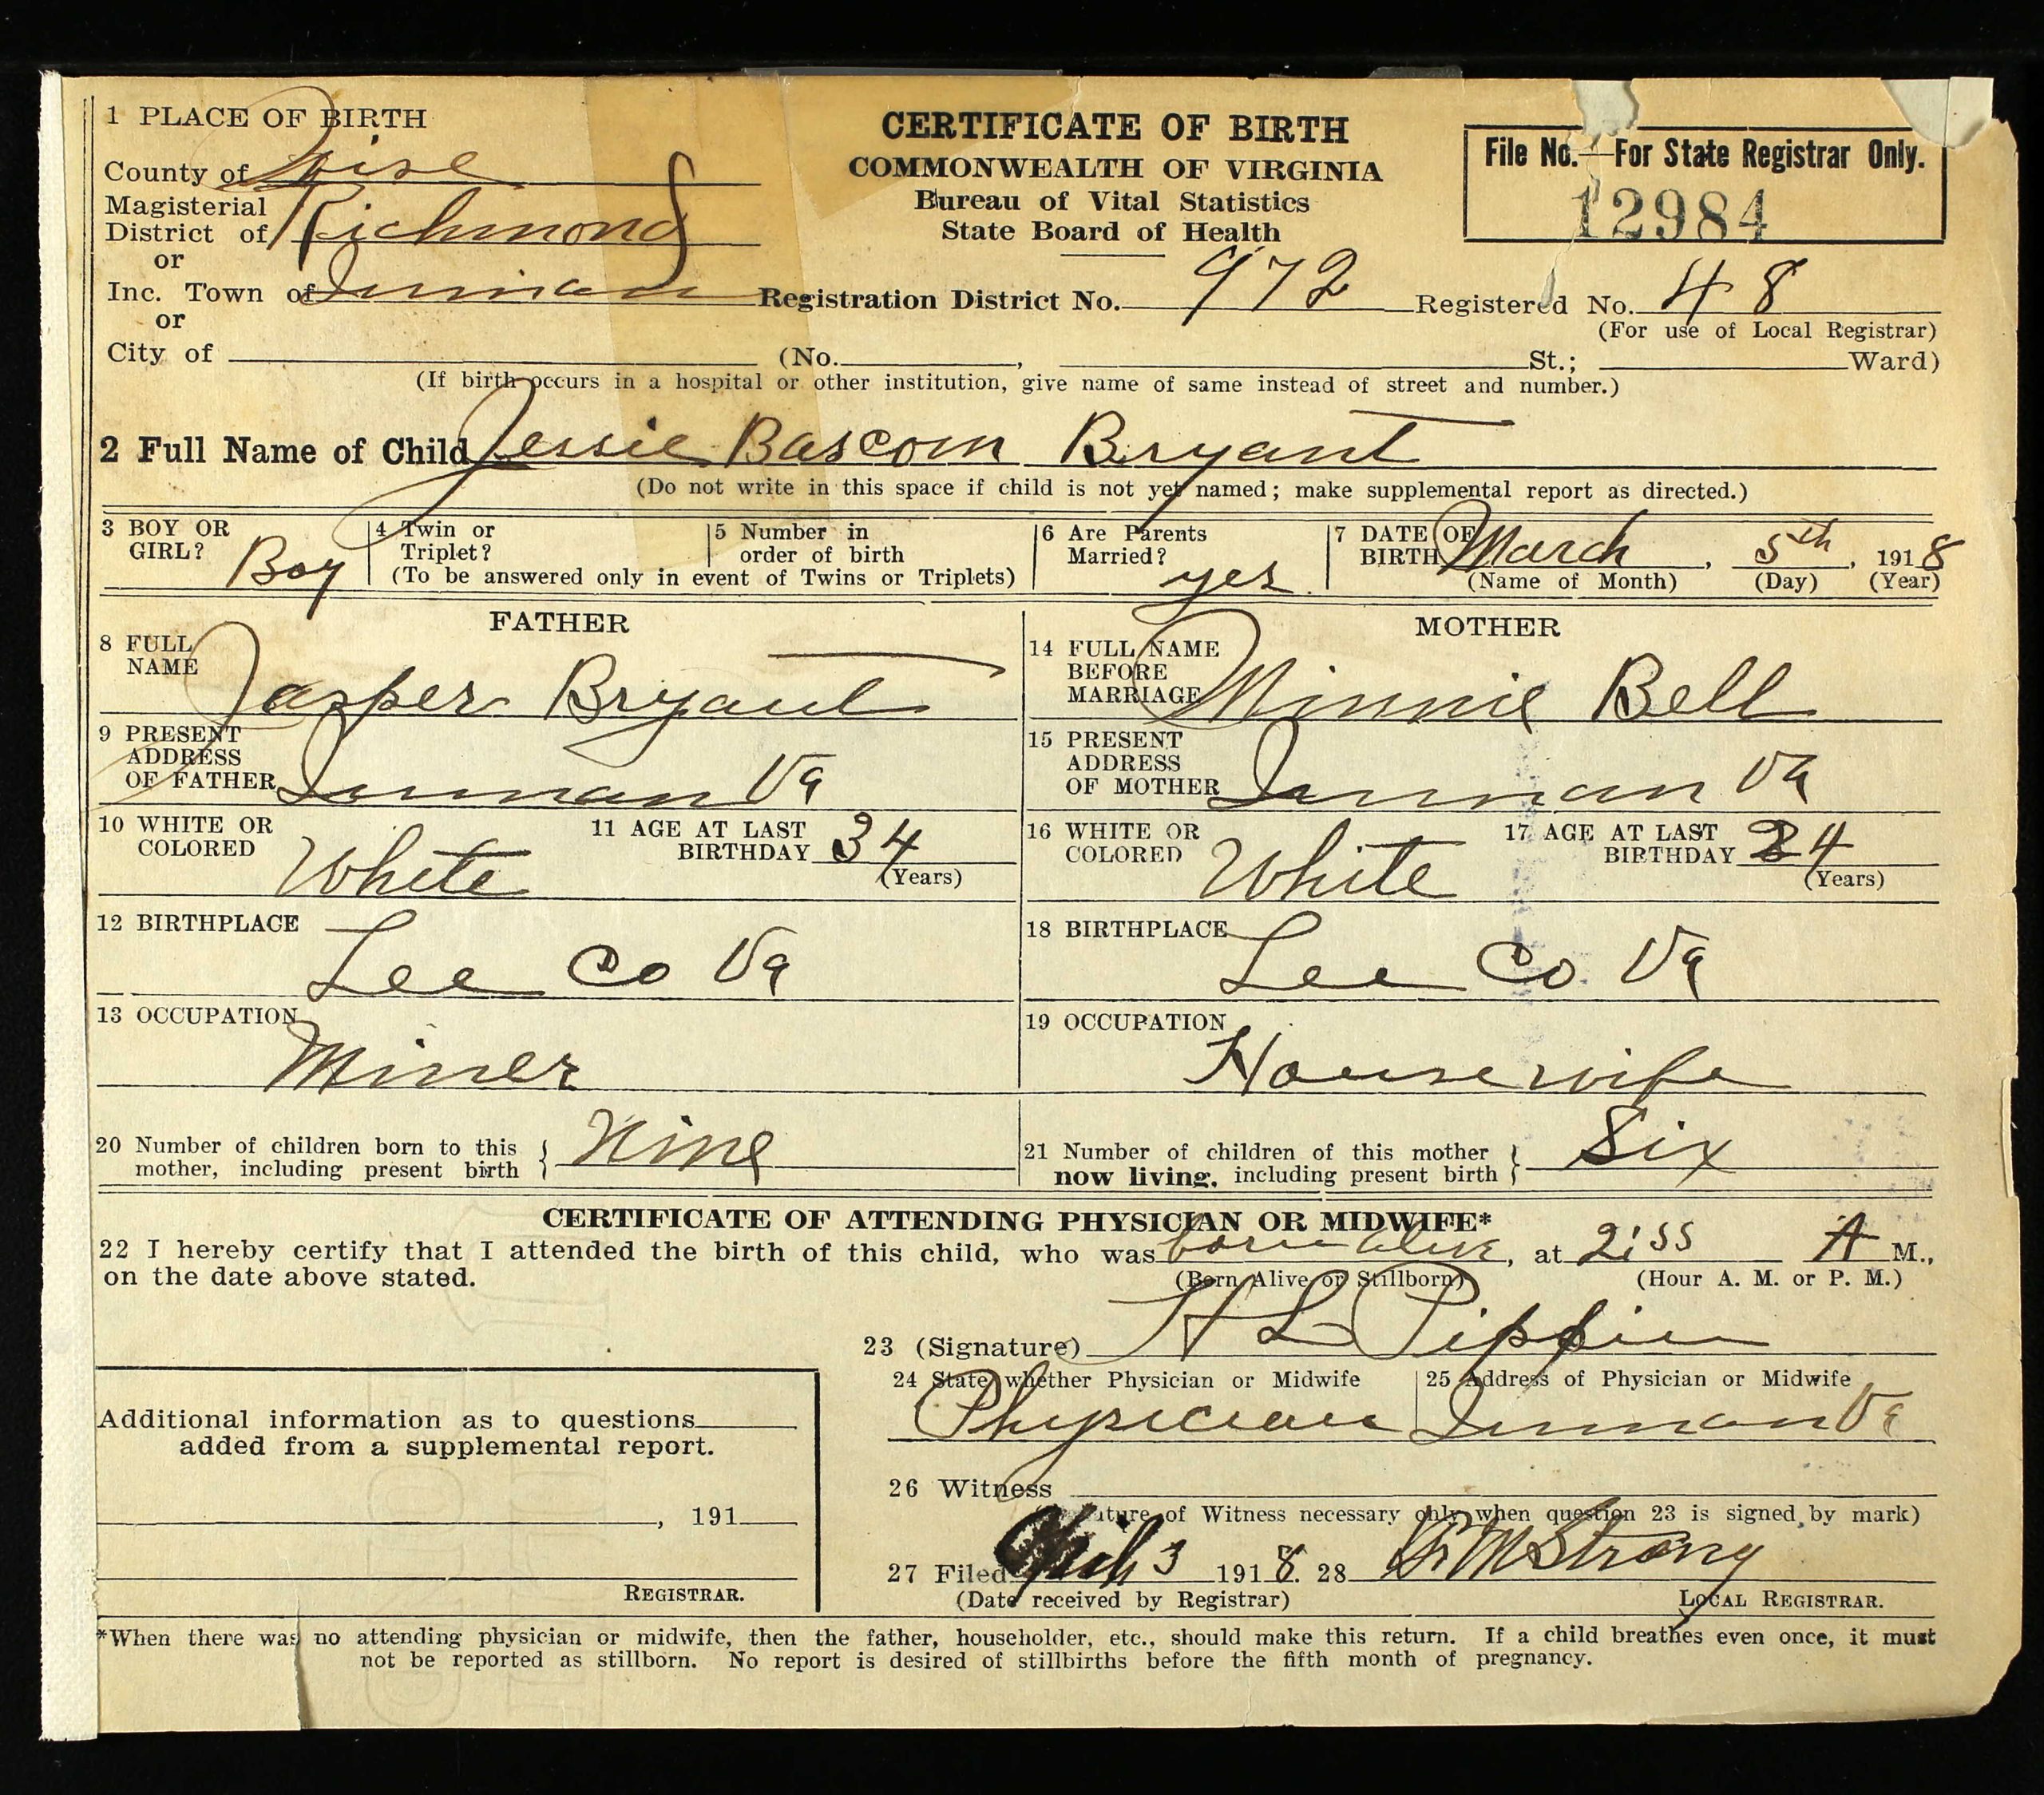 1 PLACE OF BIRTH
CERTIFICATE OF BIRTH
COMMONWEALTH OF VIRGINIA
Bureau of Vital Statistics
State Board of Health
File No.—For State Registrar Only.
12984
County of Wise
Magisterial District of Richmond
or
Inc. Town of Inman Registration District No. 972 Registered No. 48
(For use of Local Registrar)
or
City of (No. , St.; Ward)
(If birth occurs in a hospital or other institution, give name of same instead of street and number.)
2 Full Name of Child Jessie Bascom Bryant
(Do not write in this space if child is not yet named; make supplemental report as directed.)
3 BOY OR GIRL? Boy
4 Twin or Triplet?
5 Number in order of birth
(To be answered only in event of Twins or Triplets)
6 Are Parents Married? yes
7 DATE OF BIRTH March, 5th, 1918
(Name of Month) (Day) (Year)
FATHER
8 FULL NAME Jasper Bryant
9 PRESENT ADDRESS OF FATHER Inman Va
10 WHITE OR COLORED White
11 AGE AT LAST BIRTHDAY 34
(Years)
12 BIRTHPLACE Lee Co Va
13 OCCUPATION Miner
MOTHER
14 FULL NAME BEFORE MARRIAGE Minnie Bell
15 PRESENT ADDRESS OF MOTHER Inman Va
16 WHITE OR COLORED White
17 AGE AT LAST BIRTHDAY 34
(Years)
18 BIRTHPLACE Lee Co Va
19 OCCUPATION Housewife
20 Number of children born to this mother, including present birth } Nine
21 Number of children of this mother now living, including present birth } Six
CERTIFICATE OF ATTENDING PHYSICIAN OR MIDWIFE*
22 I hereby certify that I attended the birth of this child, who was born alive, at 2:55 A M.,
(Born Alive or Stillborn) (Hour A. M. or P. M.)
on the date above stated.
23 (Signature) H L Pippin
24 State whether Physician or Midwife
Physician
25 Address of Physician or Midwife
Inman Va
26 Witness
(Signature of Witness necessary only when question 23 is signed by mark)
27 Filed 3 1918. 28 Strong
(Date received by Registrar) LOCAL REGISTRAR.
Additional information as to questions
added from a supplemental report.
, 191
REGISTRAR.
*When there was no attending physician or midwife, then the father, householder, etc., should make this return. If a child breathes even once, it must
not be reported as stillborn. No report is desired of stillbirths before the fifth month of pregnancy.